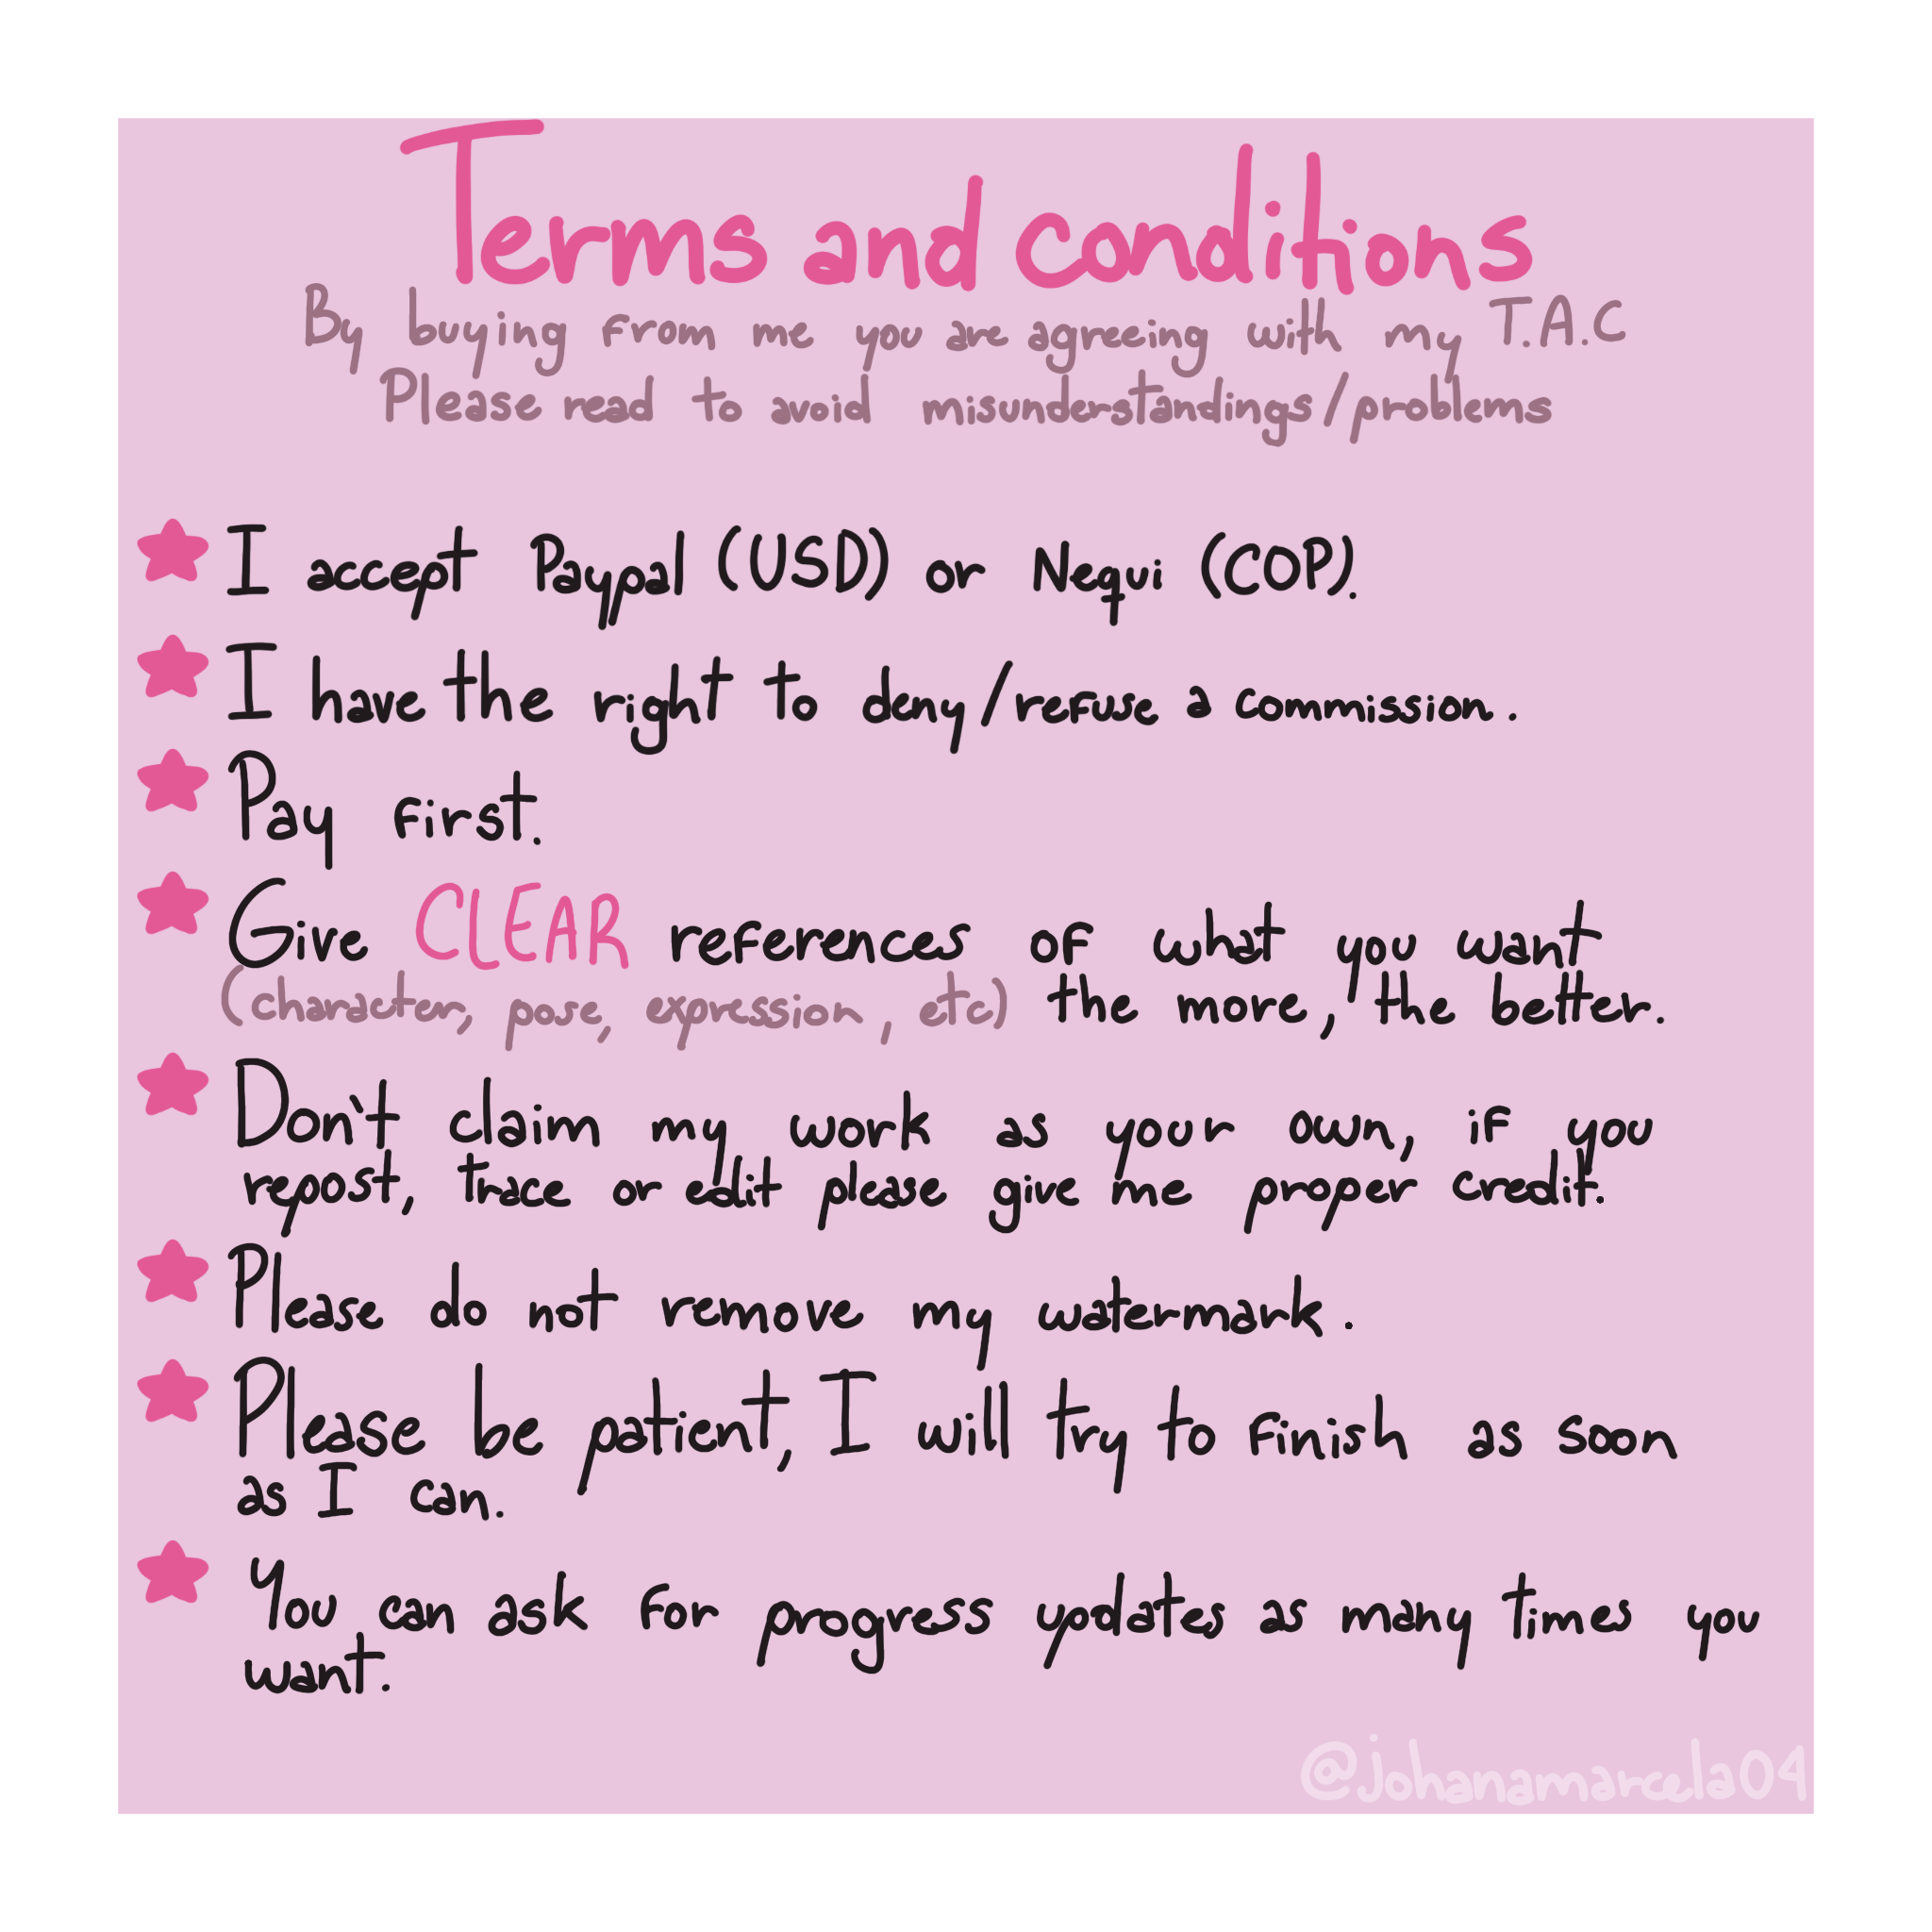 Terms and conditions
By buying from me you are agreeing with my T.A.C
Please read to avoid misunderstandings/problems
I accept Paypal (USD) or Nequi (COP).
I have the right to deny/refuse a commission.
Pay first.
Give CLEAR references of what you want
(character, pose, expression, etc) the more, the better.
Don't claim my work as your own, if you
repost, trace or edit please give me proper credit.
Please do not remove my watermark.
Please be patient, I will try to finish as soon
as I can.
You can ask for progress updates as many times you
want.
@johanamarcela04